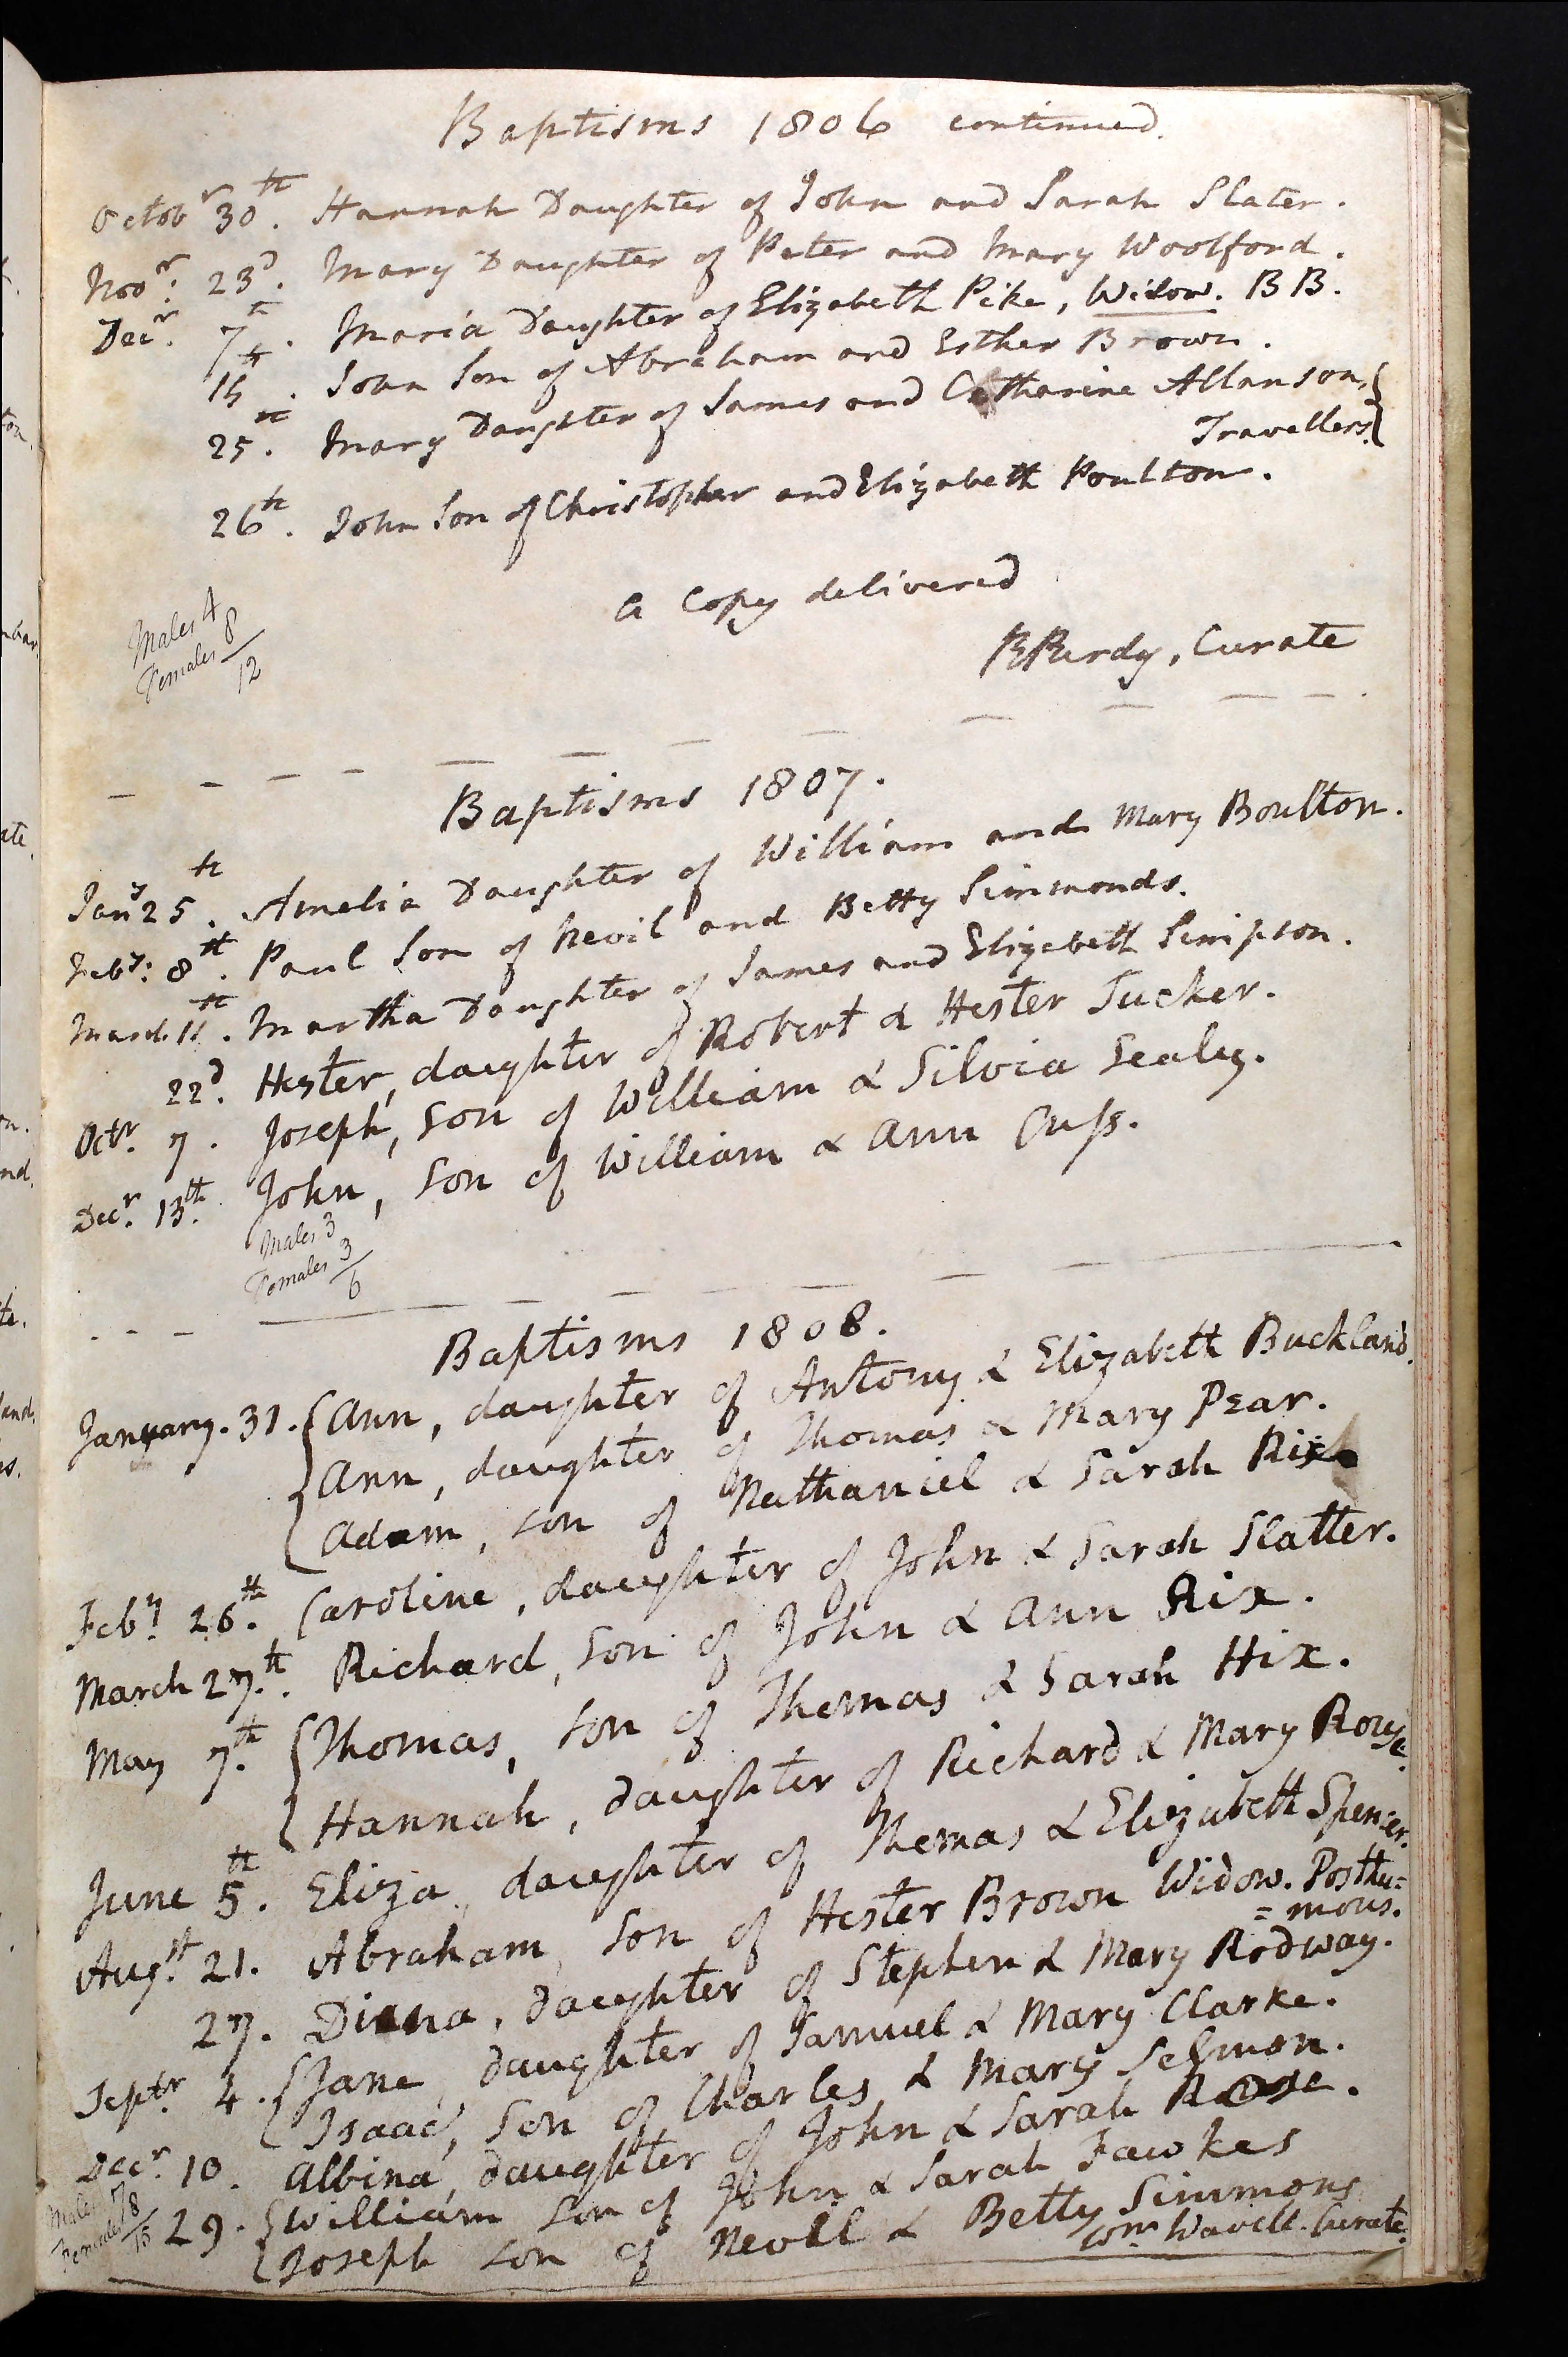 Baptisms 1806 continued.
Octobr 30th. Hannah Daughter of John and Sarah Slater.
Novr: 23d. Mary Daughter of Peter and Mary Woolford.
Decr. 7th. Maria Daughter of Elizabeth Pike, Widow. BB.
15th. John Son of Abraham and Esther Brown.
25th. Mary Daughter of James and Catharine Allanson,
Travellers.
26th. John Son of Christopher and Elizabeth Poulton.
a Copy delivered
Males 4
Females 8
12
Purdy, Curate
Baptisms 1807.
Jany 25th. Amelia Daughter of William and Mary Boulton.
Feby: 8th. Paul Son of Nevil and Betty Simmonds.
March 11th. Martha Daughter of James and Elizabeth Simpson.
22d. Hester, daughter of Robert & Hester Tucker.
Octr. 7. Joseph, Son of William & Silvia Sealey.
Decr. 13th. John, Son of William & Ann Cuss.
Males 3
Females 3
6
Baptisms 1808.
January. 31. Ann, daughter of Antony & Elizabeth Buckland.
Ann, daughter of Thomas & Mary Pear.
Adam, son of Nathaniel & Sarah Rix
Feby. 26th. Caroline, daughter of John & Sarah Slatter.
March 27th. Richard, Son of John & Ann Rix.
May 7th. Thomas, Son of Thomas & Sarah Hix.
Hannah, daughter of Richard & Mary Rouse.
June 5th. Eliza, daughter of Thomas & Elizabeth Spencer.
Augst. 21. Abraham, Son of Hester Brown Widow. Posthu=
=mous.
27. Diana, daughter of Stephen & Mary Rodway.
Septr. 4. Jane, daughter of Samuel & Mary Clarke.
Isaac, Son of Charles & Mary Selmon.
Decr. 10. Albina, daughter of John & Sarah Rose.
29. William Son of John & Sarah Fawkes
Joseph Son of Nevell & Betty Simmons
Males 7
Females 8
15
Wm Wavell. Curate.